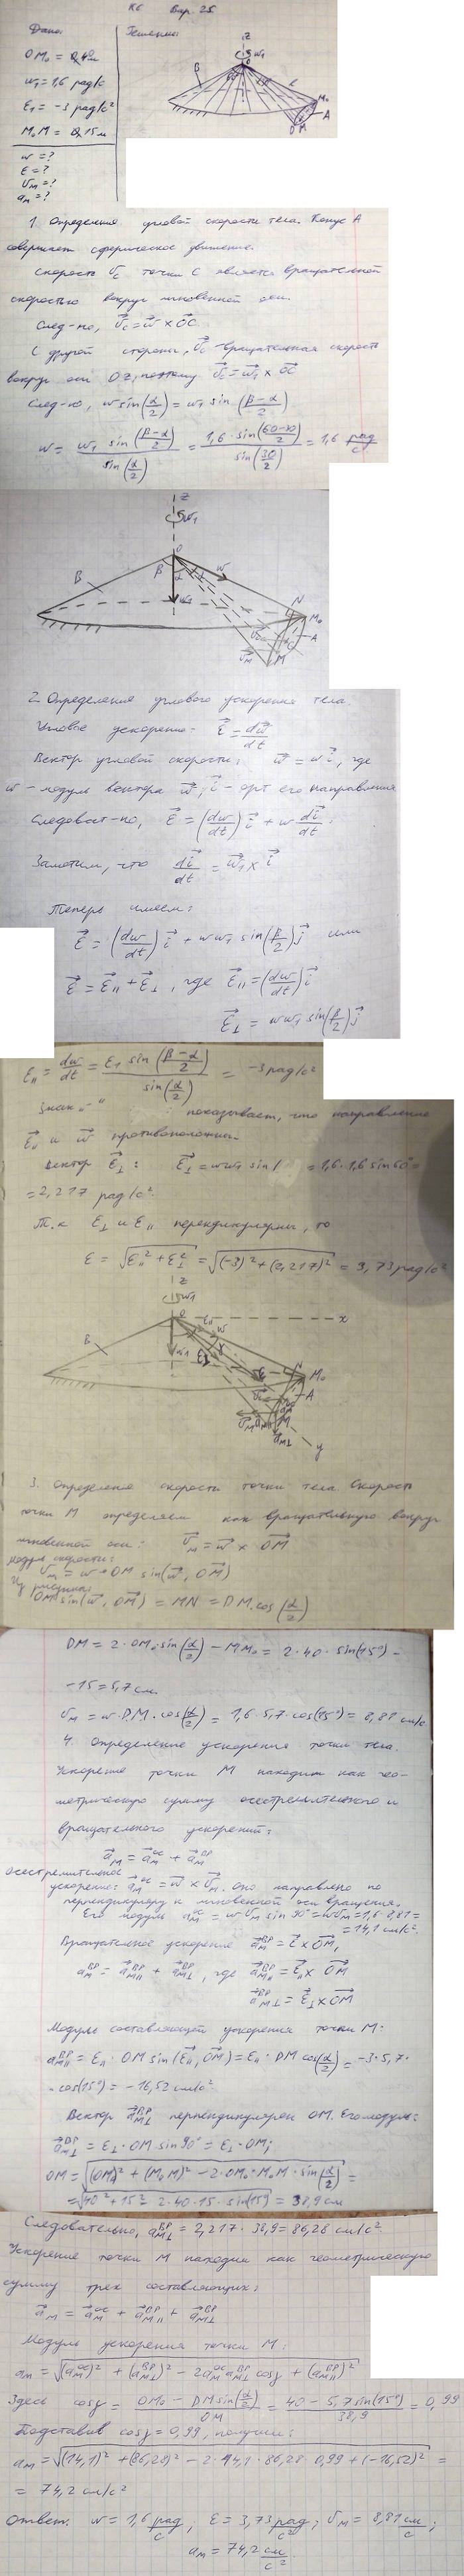 К6 Вар. 25.
Дано:
Решение:
OM₀ = 0,4 м
ω₁ = 1,6 рад/с
ε₁ = -3 рад/с²
M₀M = 0,15 м
ω = ?
ε = ?
υм = ?
aм = ?
1. Определение угловой скорости тела. Конус A
совершает сферическое движение.
Скорость υc точки C является вращательной
скоростью вокруг мгновенной оси.
След-но, υc = ω × OC
С другой стороны, υc - вращательная скорость
вокруг оси Oz, поэтому υc = ω₁ × OC
След-но, ω sin(α/2) = ω₁ sin(β-α/2)
ω = ω₁ sin(β-α/2) / sin(α/2) = 1,6 · sin(60-30/2) / sin(30/2) = 1,6 рад/с
z
ω₁
O
B
β
α
ω
ω₁
N
M₀
A
C
υc
υм
M
2. Определение углового ускорения тела.
Угловое ускорение: ε = dω/dt
Вектор угловой скорости: ω = ω i, где
ω - модуль вектора ω, i - орт его направления
Следоват-но, ε = (dω/dt) i + ω di/dt
Заметим, что di/dt = ω₁ × i
Теперь имеем:
ε = (dω/dt) i + ωω₁ sin(β/2) j или
ε = ε∥ + ε⊥, где ε∥ = (dω/dt) i
ε⊥ = ωω₁ sin(β/2) j
ε∥ = dω/dt = ε₁ sin(β-α/2) / sin(α/2) = -3 рад/с²
Знак „-" показывает, что направления
ε∥ и ω противоположны.
Вектор ε⊥: ε⊥ = ωω₁ sin( = 1,6·1,6 sin 60° =
= 2,217 рад/с²
Т.к. ε⊥ и ε∥ перпендикулярны, то
ε = √ε∥² + ε⊥² = √(-3)² + (2,217)² = 3,73 рад/с²
z
ω₁
O
x
B
ω
ω₁
N
M₀
A
M
y
3. Определение скорости точки тела. Скорость
точки M определяем как вращательную вокруг
мгновенной оси: υм = ω × OM
модуль скорости:
υм = ω · OM sin(ω, OM)
Из рисунка:
OM sin(ω, OM) = MN = DM · cos(α/2)
DM = 2 · OM₀ · sin(α/2) - MM₀ = 2 · 40 · sin(15°) -
-15 = 5,7 см.
υм = ω · DM · cos(α/2) = 1,6 · 5,7 · cos(15°) = 8,81 см/с
4. Определение ускорения точки тела.
Ускорение точки M находим как гео-
метрическую сумму осестремительного и
вращательного ускорений:
aм = aм^ос + aм^вр
Осестремительное
ускорение: aм^ос = ω × υм. Оно направлено по
перпендикуляру к мгновенной оси вращения.
Его модуль aм^ос = ω υм sin 90° = ωυм = 1,6 · 8,81 =
= 14,1 см/с².
Вращательное ускорение aм^вр = ε × OM,
aм^вр = aм∥^вр + aм⊥^вр, где aм∥^вр = ε∥ × OM
aм⊥^вр = ε⊥ × OM
Модуль составляющей ускорения точки M:
aм∥^вр = ε∥ · OM sin(ε∥, OM) = ε∥ · DM cos(α/2) = -3 · 5,7 ·
· cos(15°) = -16,52 см/с².
Вектор aм⊥^вр перпендикулярен OM. Его модуль:
aм⊥^вр = ε⊥ · OM · sin 90° = ε⊥ · OM;
OM = √(OM₀)² + (M₀M)² - 2 · OM₀ · M₀M · sin(α/2) =
= √40² + 15² - 2 · 40 · 15 · sin(15°) = 38,9 см
Следовательно, aм⊥^вр = 2,217 · 38,9 = 86,28 см/с².
Ускорение точки M находим как геометрическую
сумму трех составляющих:
aм = aм^ос + aм∥^вр + aм⊥^вр
Модуль ускорения точки M:
aм = √(aм^ос)² + (aм⊥^вр)² - 2aм^ос aм⊥^вр cosγ + (aм∥^вр)²
Здесь cosγ = OM₀ - DM sin(α/2) / OM = 40 - 5,7 sin(15°) / 38,9 = 0,99
Подставив cosγ = 0,99, получим:
aм = √(14,1)² + (86,28)² - 2 · 14,1 · 86,28 · 0,99 + (-16,52)² =
= 74,2 см/с²
Ответ: ω = 1,6 рад/с; ε = 3,73 рад/с²; υм = 8,81 см/с;
aм = 74,2 см/с².